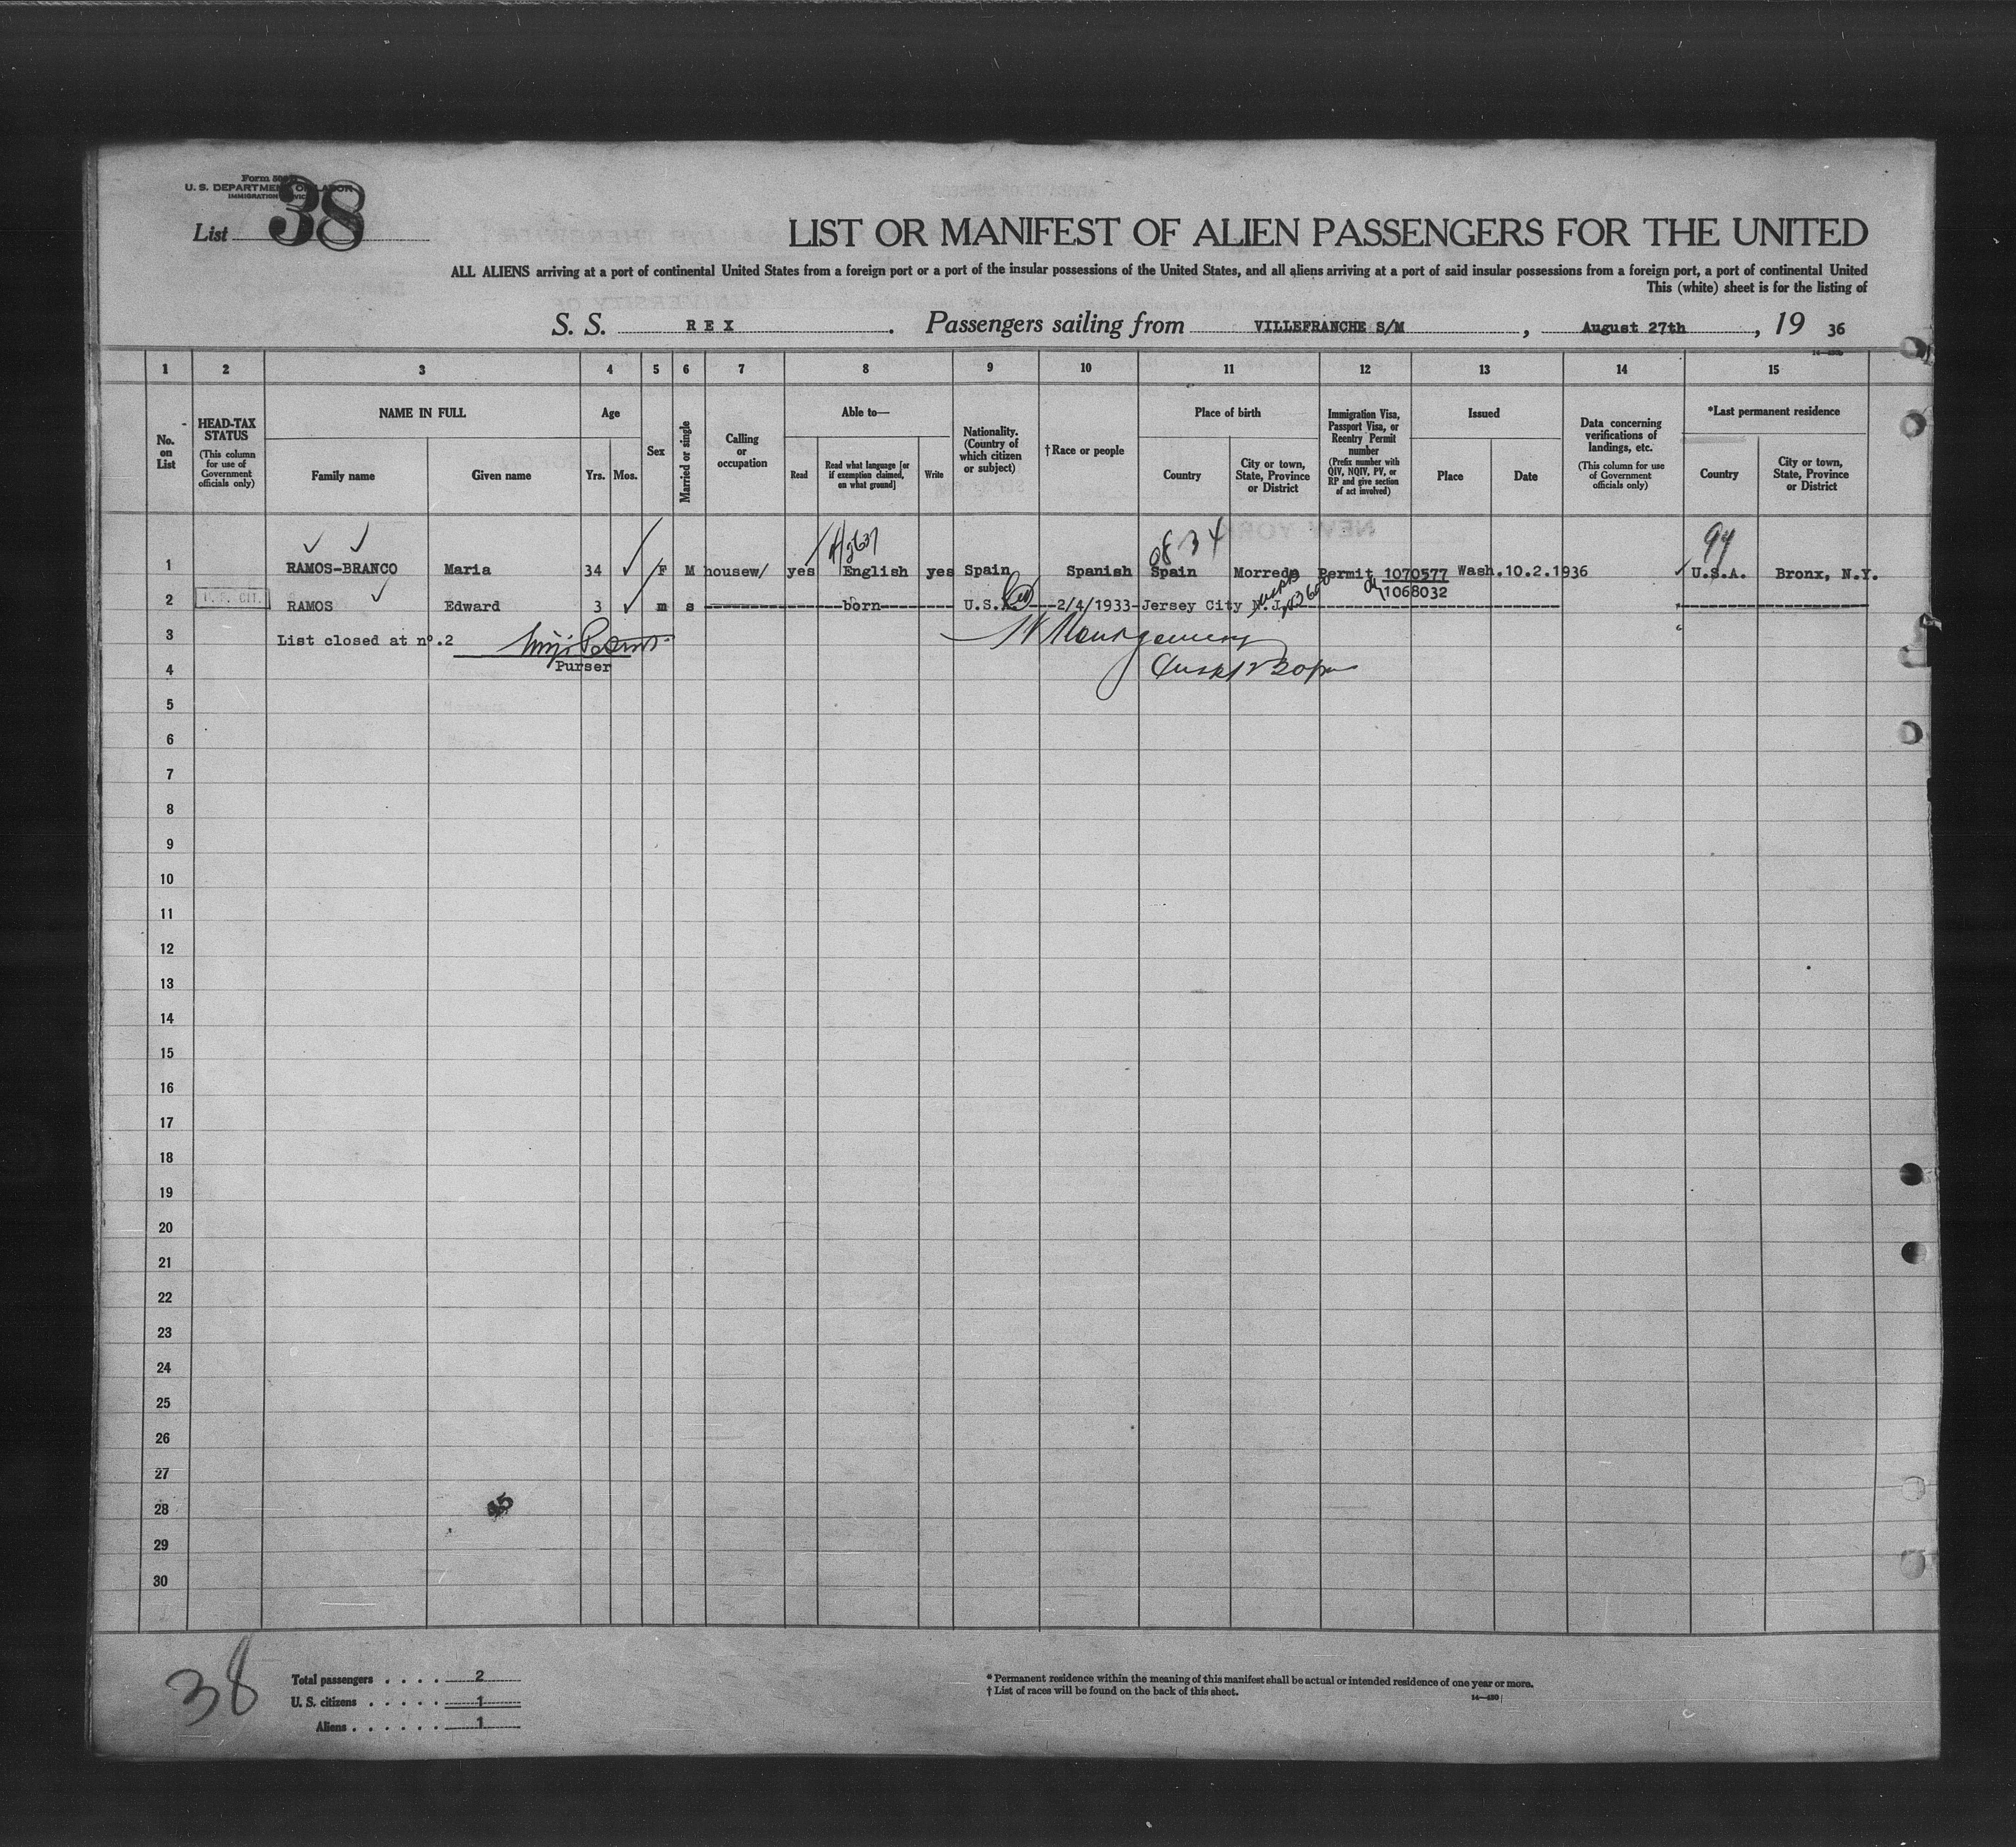 Form 500
U. S. DEPARTMENT OF LABOR
IMMIGRATION
List 38
LIST OR MANIFEST OF ALIEN PASSENGERS FOR THE UNITED
ALL ALIENS arriving at a port of continental United States from a foreign port or a port of the insular possessions of the United States, and all aliens arriving at a port of said insular possessions from a foreign port, a port of continental United
This (white) sheet is for the listing of
S. S. REX. Passengers sailing from VILLEFRANCHE S/M, August 27th, 19 36
1 2 3 4 5 6 7 8 9 10 11 12 13 14 15
No. on List
HEAD-TAX STATUS
(This column for use of Government officials only)
NAME IN FULL
Family name
Given name
Age
Yrs. Mos.
Sex
Married or single
Calling or occupation
Able to—
Read
Read what language [or if exemption claimed, on what ground]
Write
Nationality. (Country of which citizen or subject)
†Race or people
Place of birth
Country
City or town, State, Province or District
Immigration Visa, Passport Visa, or Reentry Permit number
(Prefix number with QIV, NQIV, PV, or RP and give section of act involved)
Issued
Place
Date
Data concerning verifications of landings, etc.
(This column for use of Government officials only)
*Last permanent residence
Country
City or town, State, Province or District
0834 94
1 RAMOS-BRANCO Maria 34 F M housew/ yes English yes Spain Spanish Spain Morreda Permit 1070577 Wash.10.2.1936 U.S.A. Bronx, N.Y.
1068032
2 U.S. CIT. RAMOS Edward 3 m s born U.S.A. 2/4/1933-Jersey City N.J.
3 List closed at nº.2 Montgomery
4 Purser
5
6
7
8
9
10
11
12
13
14
15
16
17
18
19
20
21
22
23
24
25
26
27
28
29
30
38
Total passengers . . . . 2
U. S. citizens . . . . . 1
Aliens . . . . . . 1
* Permanent residence within the meaning of this manifest shall be actual or intended residence of one year or more.
† List of races will be found on the back of this sheet.
14—480